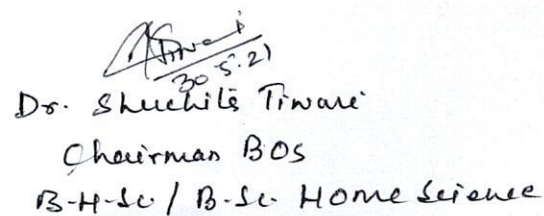 Tiwari
30.5.21
Dr. Shuchita Tiwari
Chairman BOS
B-H-Sc. / B.Sc. Home Science